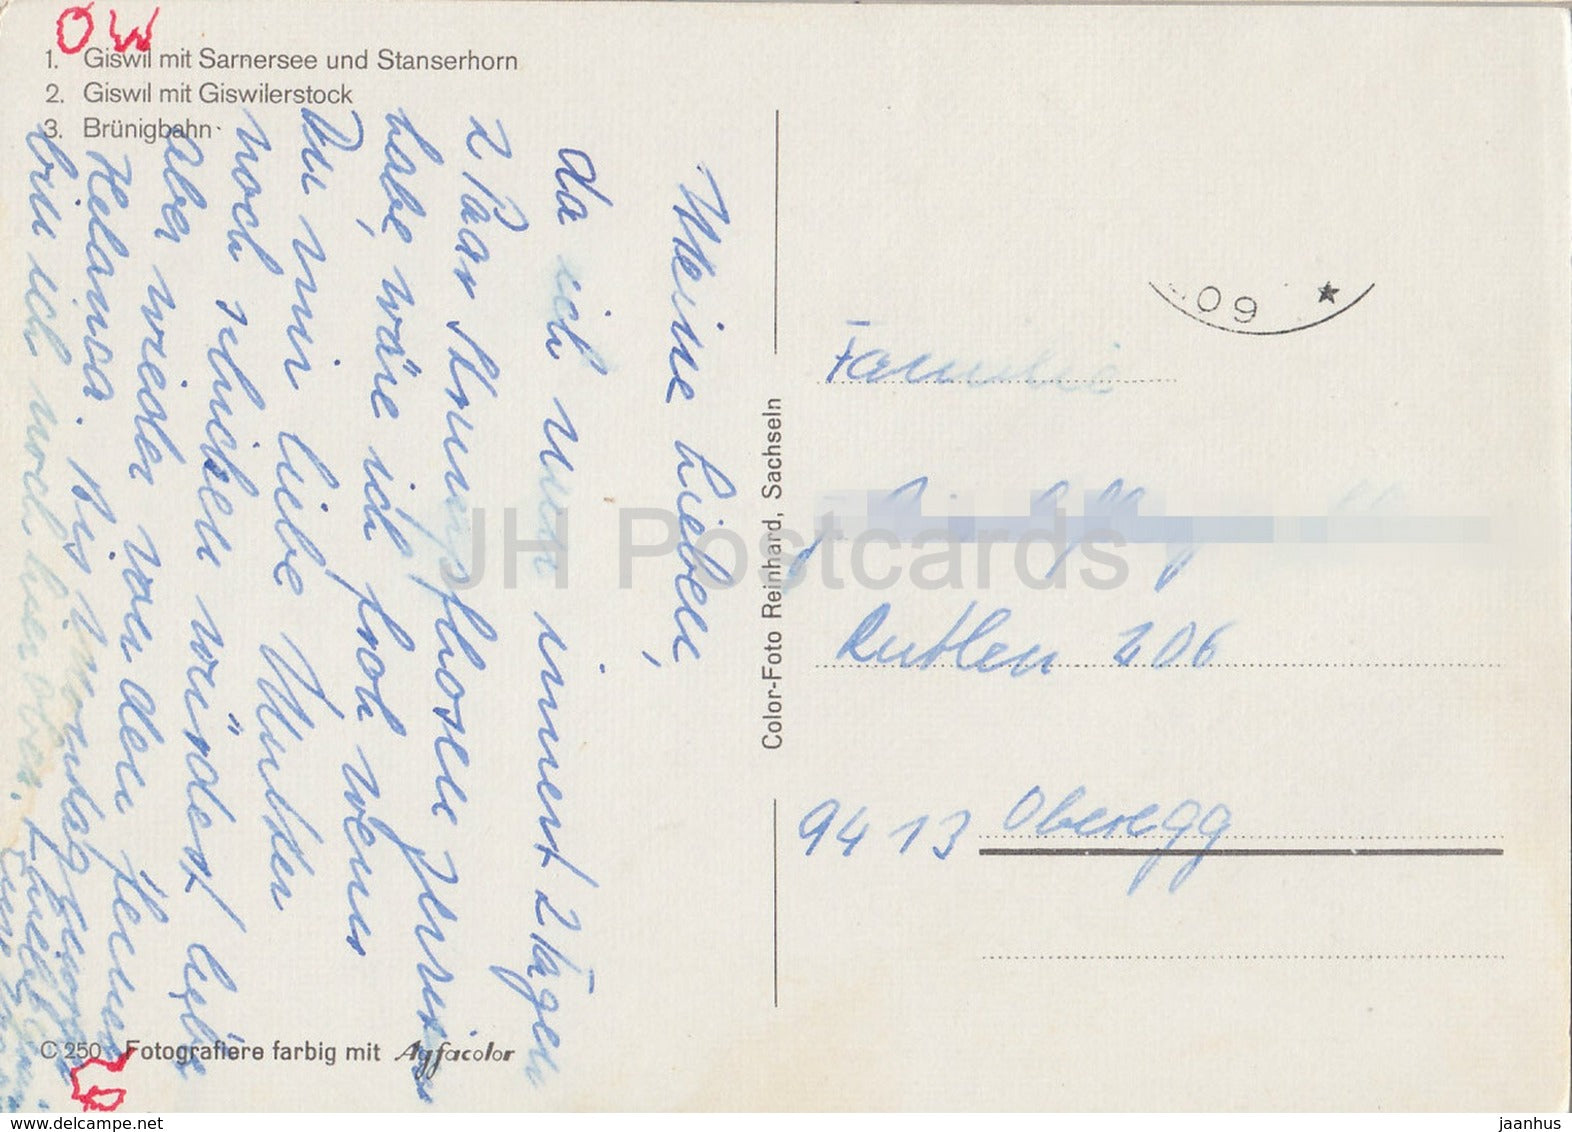 OW
1. Giswil mit Sarnersee und Stanserhorn
2. Giswil mit Giswilerstock
3. Brünigbahn
Meine Lieben,
da ich nun innert 2 Tagen
2 Paar Strumpfhosen
habe, wäre ich froh wenn
Du mir liebe
noch schicken würdest
aber wieder von den
Helanca. Bis Montag
bin ich noch hier oben.
C 250 Fotografiere farbig mit Agfacolor
Color-Foto Reinhard, Sachseln
09
Familie
Rutlen 206
9413 Oberegg
JH Postcards
www.delcampe.net
jaanhus